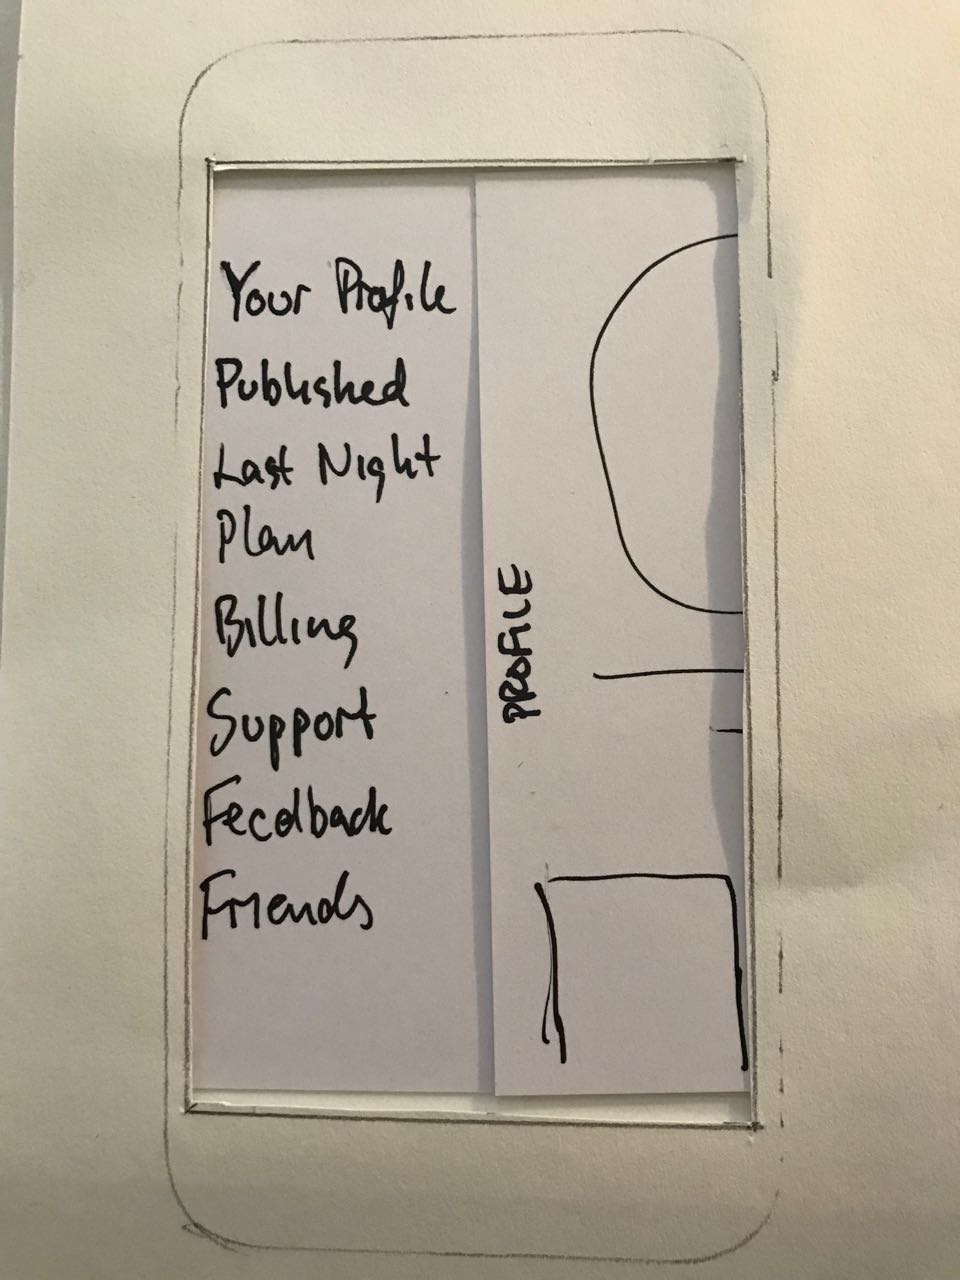 Your Profile
Published
Last Night
Plan
Billing
Support
Feedback
Friends
PROFILE